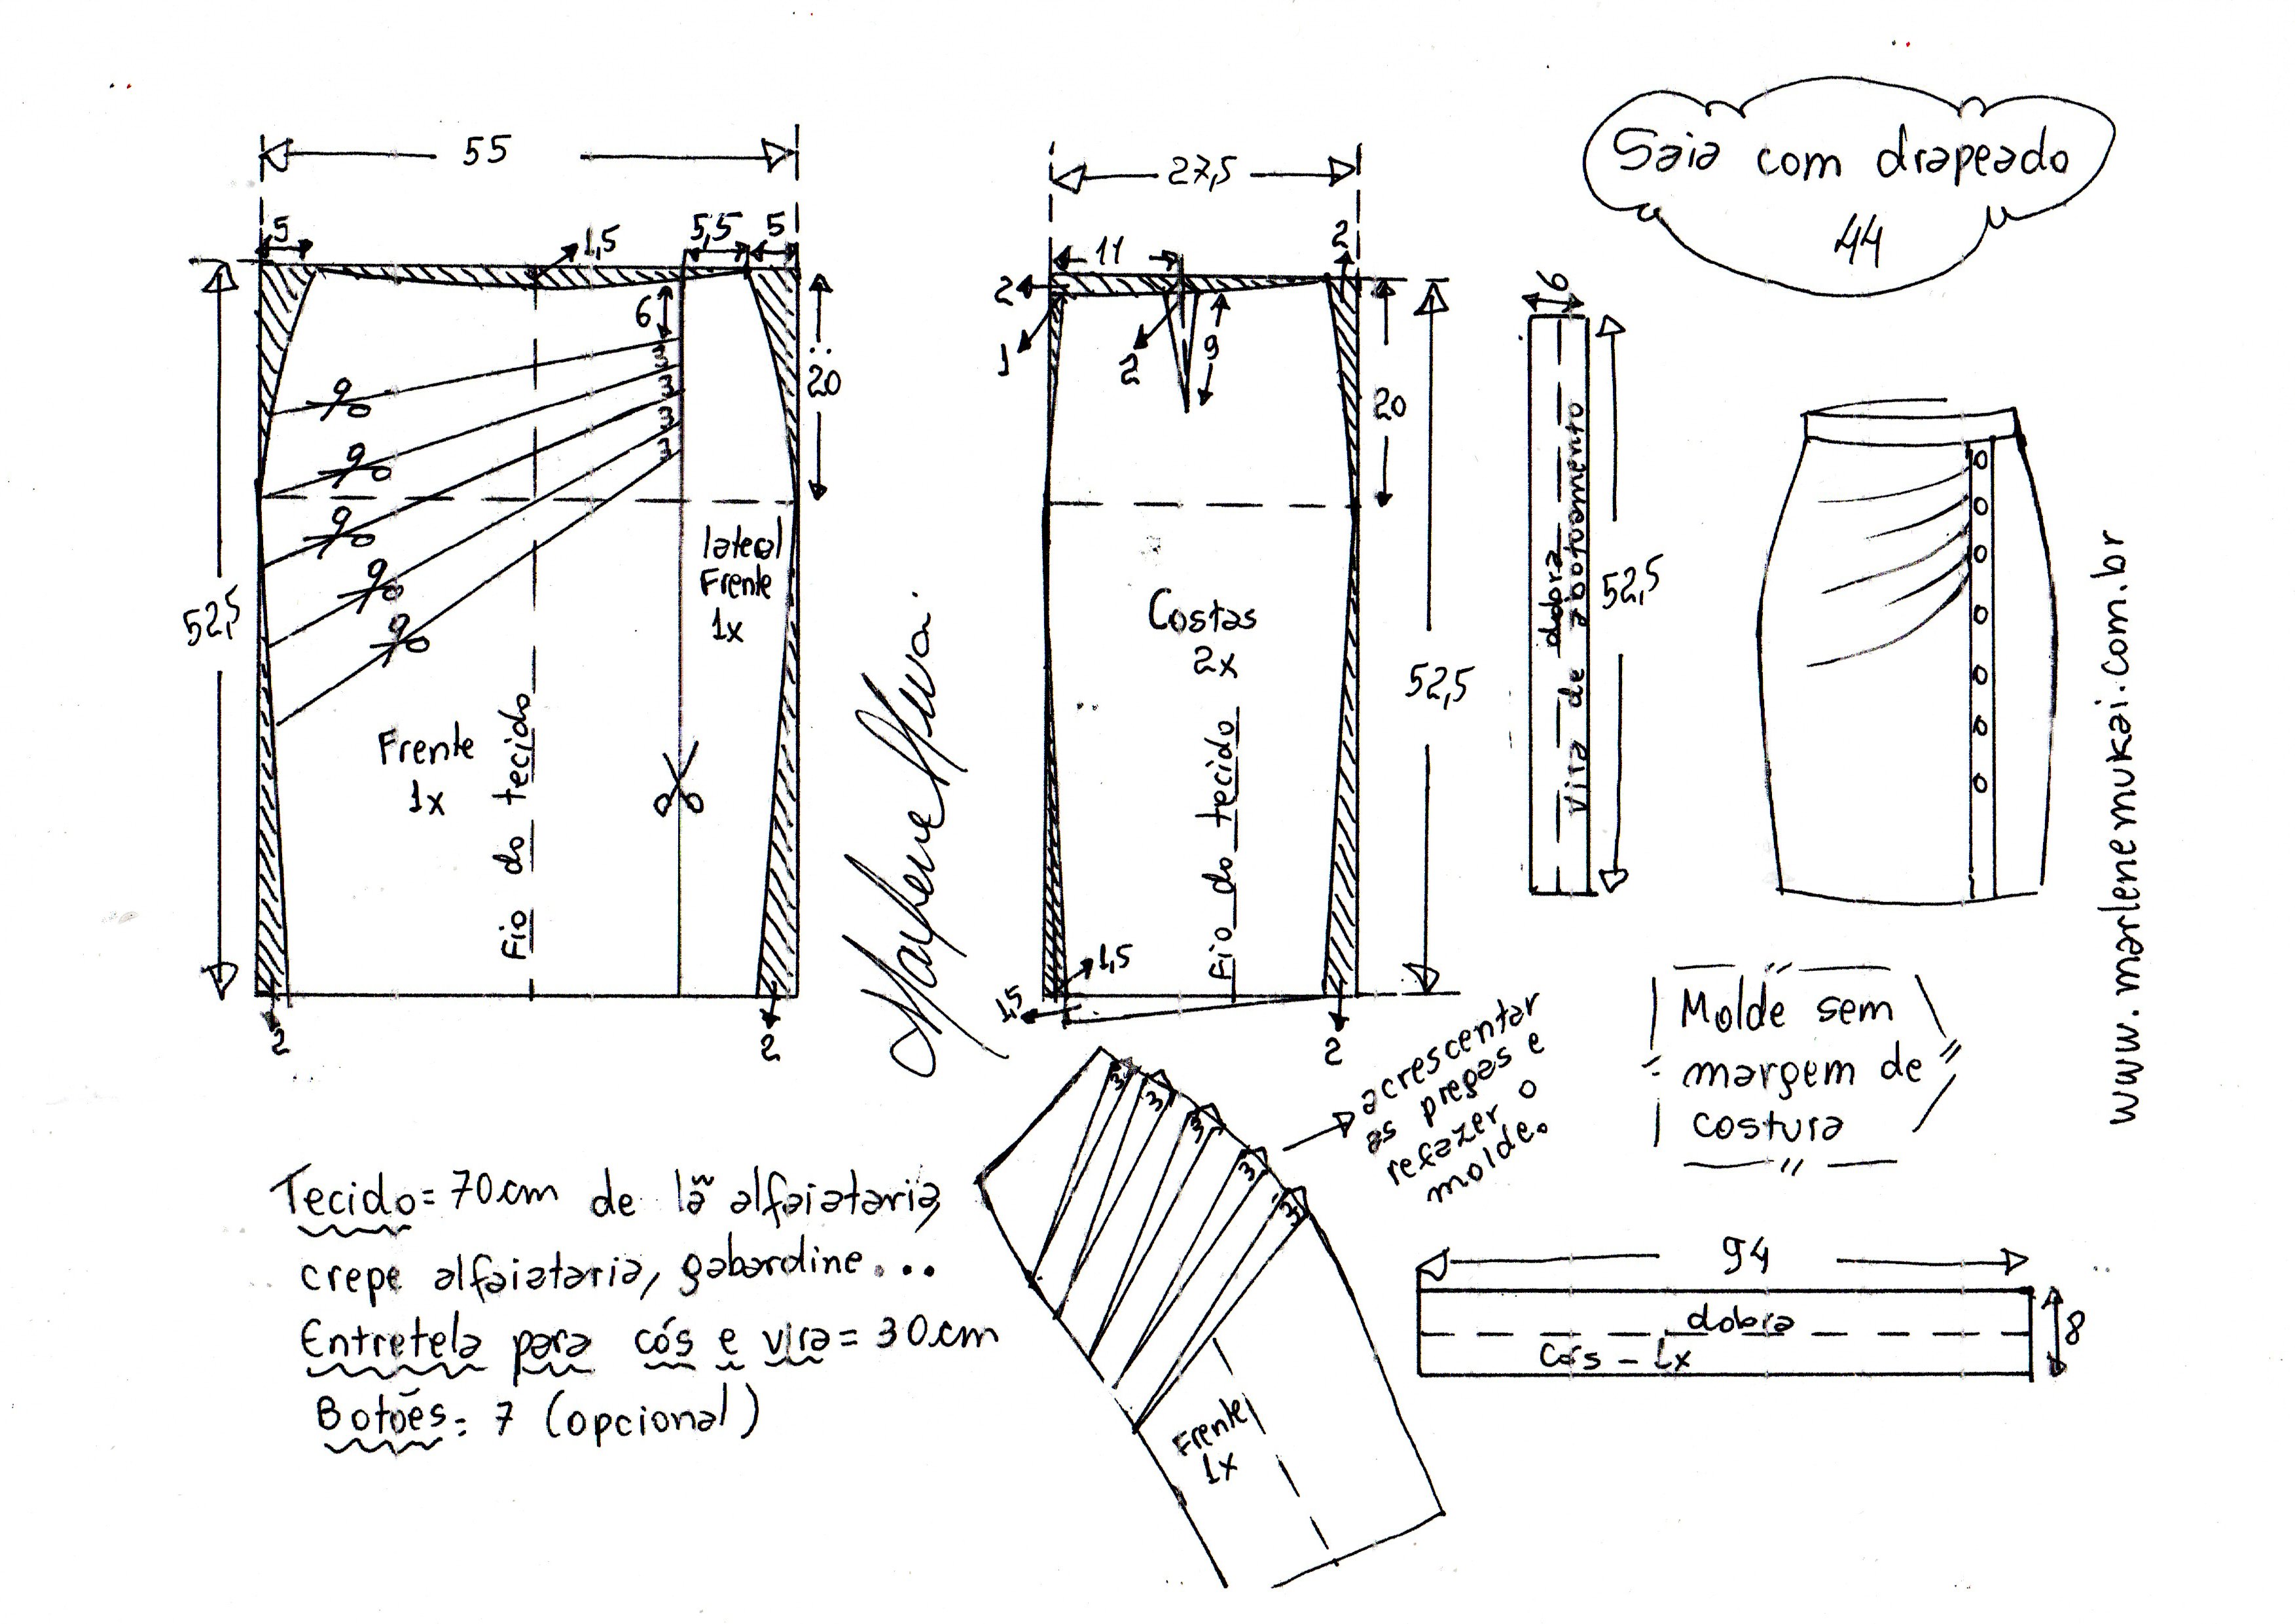 Saia com drapeado
44
55
5
1,5
5,5
5
6
3
3
3
3
3
20
52,5
lateral
Frente
1x
Frente
1x
Fio do tecido
2
2
Marlene Mukai
27,5
11
2
2
1
2
9
20
Costas
2x
52,5
Fio do tecido
1,5
1,5
2
6
dobra
vira de abotoamento
52,5
www.marlenemukai.com.br
Molde sem
margem de
costura
acrescentar
as pregas e
refazer o
molde.
3
3
3
3
3
Frente
1x
Tecido = 70cm de lã alfaiataria,
crepe alfaiataria, gabardine...
Entretela para cós e vira = 30cm
Botões: 7 (opcional)
94
dobra
Cós - 1x
8